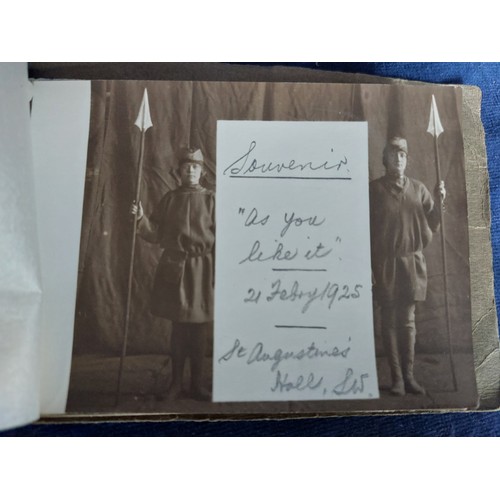 Souvenir.
"As you
like it".
21 Febry 1925
St Augustine's
Hall, SW.